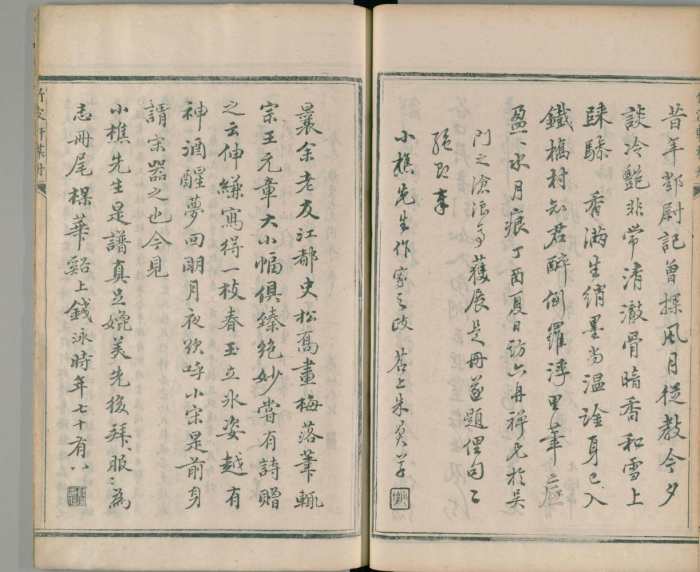 昔年鄧尉記曾探風月從教今夕
談冷艷非常清澈骨暗香和雪上
疎 香滿生綃墨尚温詮身已入
鐵橋村知君醉倒羅浮里華
盈〻水月痕丁酉夏日訪六舟禪兄於吳
門之滄浪亭獲展是冊遂題俚句乙
小樵先生作家之政 苕上朱 草
曩余老友江都史松喬畫梅落筆輒
宗王元章大小幅俱臻絶妙嘗有詩贈
之云伸縑寫得一枝春玉立氷姿越有
神酒醒夢回明月夜欲呼小宗是前身
謂宗器之也今見
小樵先生是譜真足媲美先後拜服〻為
志冊尾楳華谿上錢泳時年七十有八